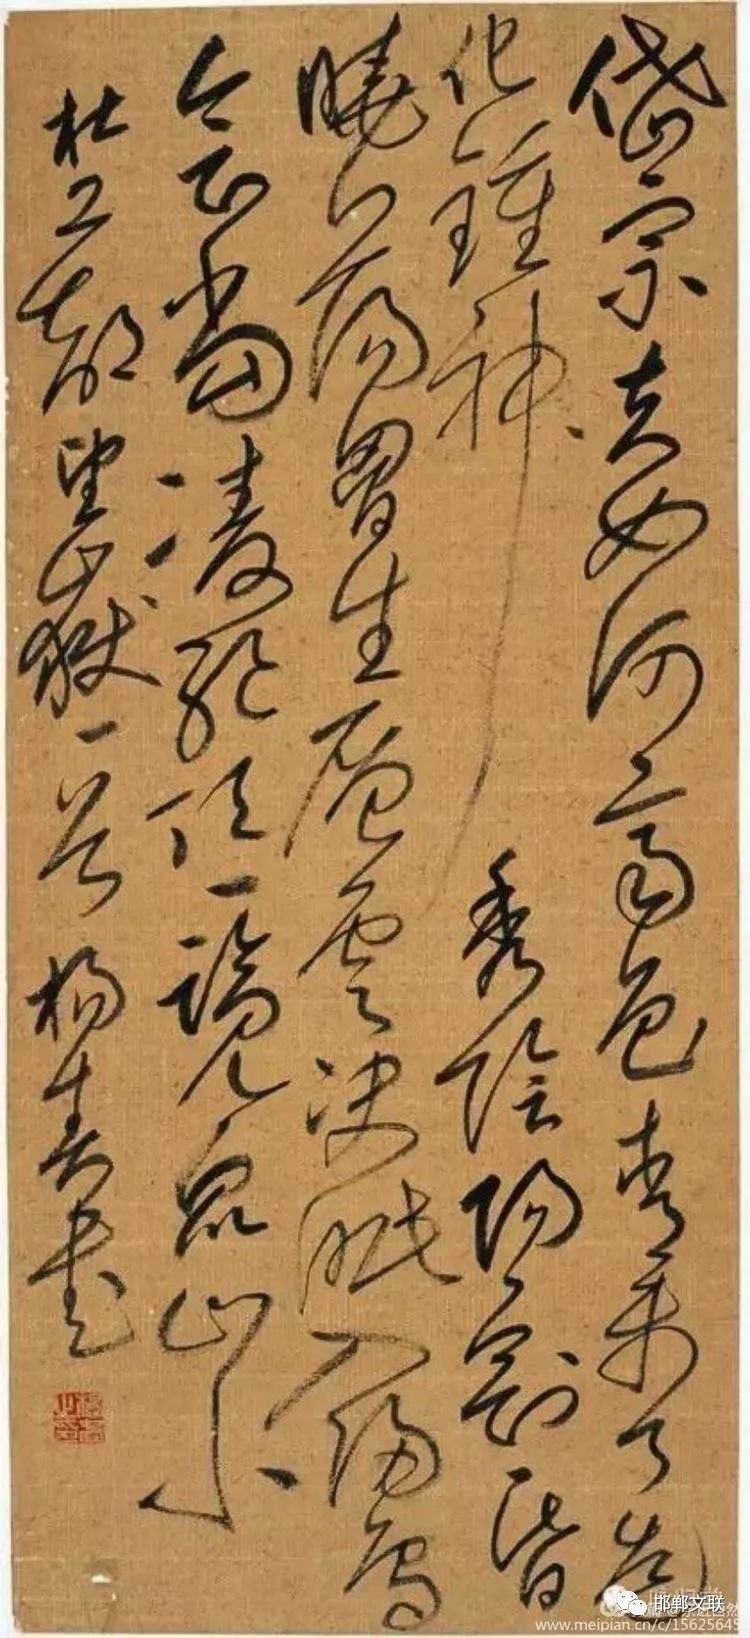 岱宗夫如何齊色青未了造
化鍾神秀陰陽割昏
曉蕩胷生層雲決眥入歸鳥
會當凌絕頂一覽眾山小
杜工部望嶽一首 楊書
邯郸文联
www.meipian.cn/c/15625645